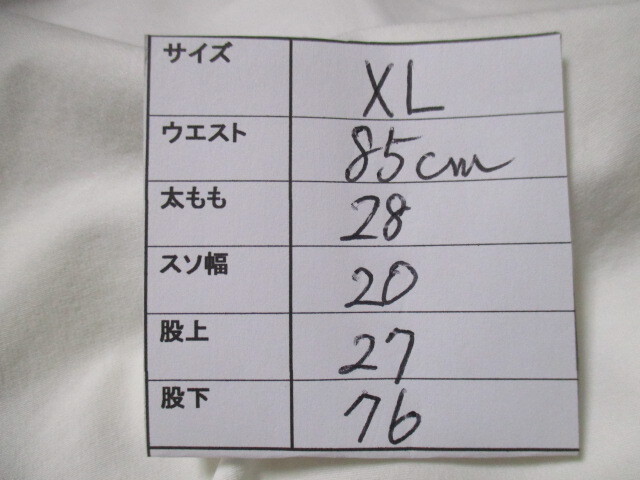 サイズ XL
ウエスト 85cm
太もも 28
スソ幅 20
股上 27
股下 76